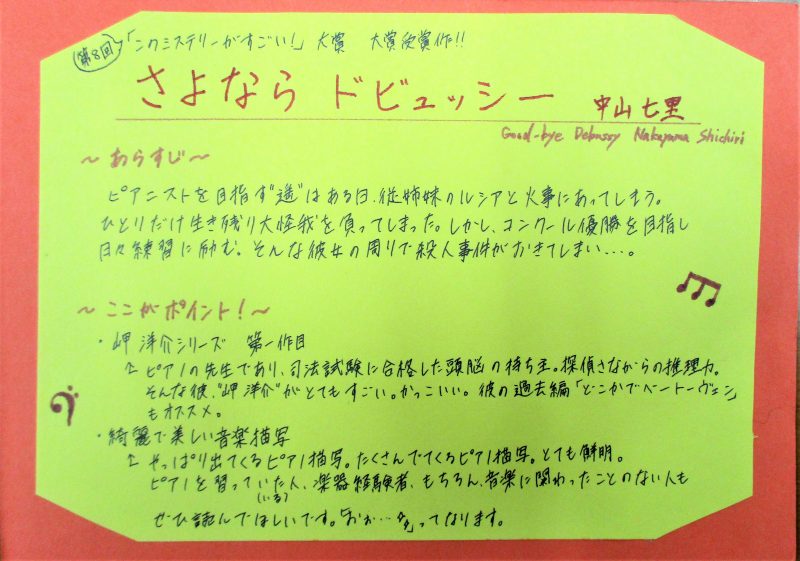 第8回 「このミステリーがすごい!」大賞 大賞受賞作!!
さよなら ドビュッシー 中山七里
Good-bye Debussy Nakayama Shichiri
～あらすじ～
ピアニストを目指す"遥"はある日、従姉妹のルシアと火事にあってしまう。
ひとりだけ生き残り大怪我を負ってしまった。しかし、コンクール優勝を目指し
日々練習に励む。そんな彼女の周りで殺人事件がおきてしまい・・・。
～ここがポイント!～
・岬洋介シリーズ 第一作目
ピアノの先生であり、司法試験に合格した頭脳の持ち主。探偵さながらの推理力。
そんな彼、"岬洋介"がとてもすごい。かっこいい。彼の過去編「どこかでベートーヴェン」
もオススメ。
・綺麗で美しい音楽描写
やっぱり出てくるピアノ描写。たくさんでてくるピアノ描写。とても鮮明。
ピアノを習っていた人、楽器経験者、もちろん、音楽に関わったことのない人も
(いる)
ぜひ読んでほしいです。「おぉ…」ってなります。